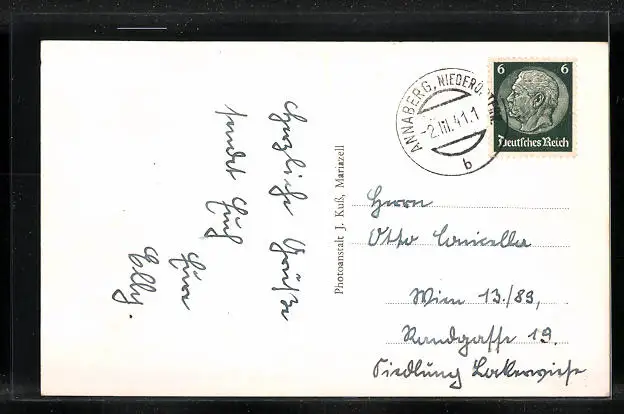 Herzliche Grüße
sendet Euch
Eure
Elly.
Photoanstalt J. Kuß, Mariazell
ANNABERG, NIEDERD.
-2.III.41.1
b
6 6
Deutsches Reich
Herrn
Otto
Wien 13./89,
Randgasse 19.
Siedlung Lockerwiese